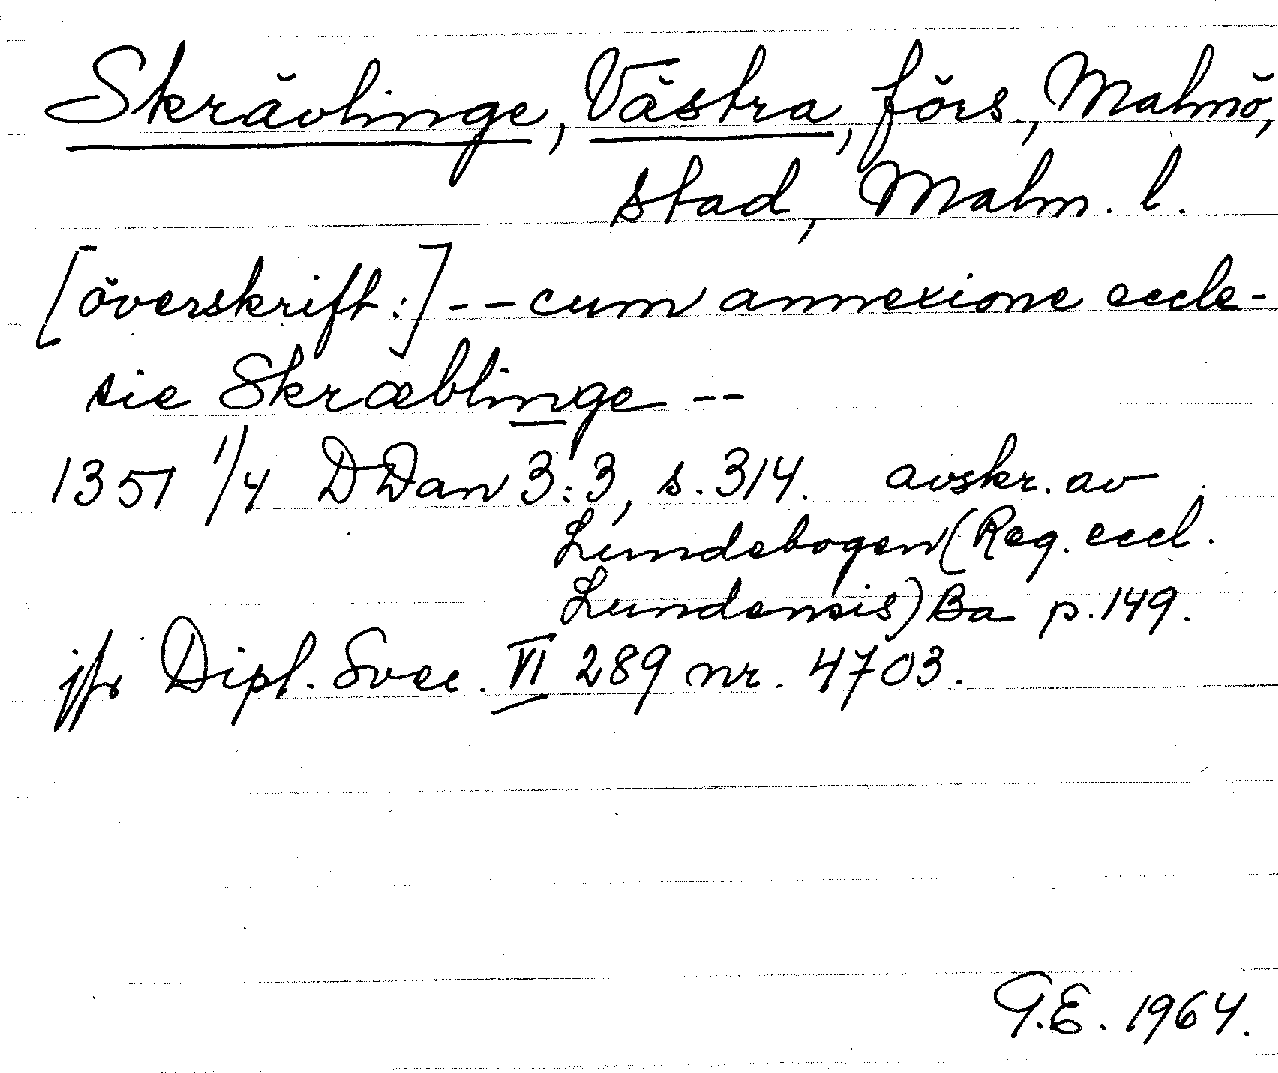 Skrävlinge, Västra, förs., Malmö,
stad, Malm. l.
[överskrift:] -- cum annexione eccle-
sie Skræblinge --
1351 1/4 DDan 3:3, s. 314. avskr. av
Lundebogen (Reg. eccl.
Lundensis) Ba p. 149.
jfr Dipl. Svec. VI 289 nr. 4703.
G.E. 1964.